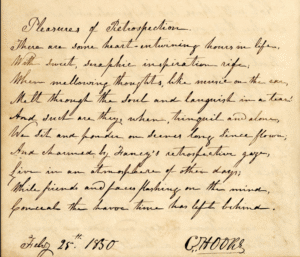 Pleasures of Retrospection
There are some heart-entwining hours in life,
With sweet, seraphic inspiration rife,
When mellowing thoughts, like music on the ear,
Melt through the soul and languish in a tear
And such are they, when tranquil and alone,
We sit and ponder on scenes long since flown,
And charmed by Fancy's retrospective gaze,
Live in an atmosphere of other days,
While friends and faces flashing on the mind,
Conceals the havoc time has left behind.
July 25th 1850 C. HOOKE